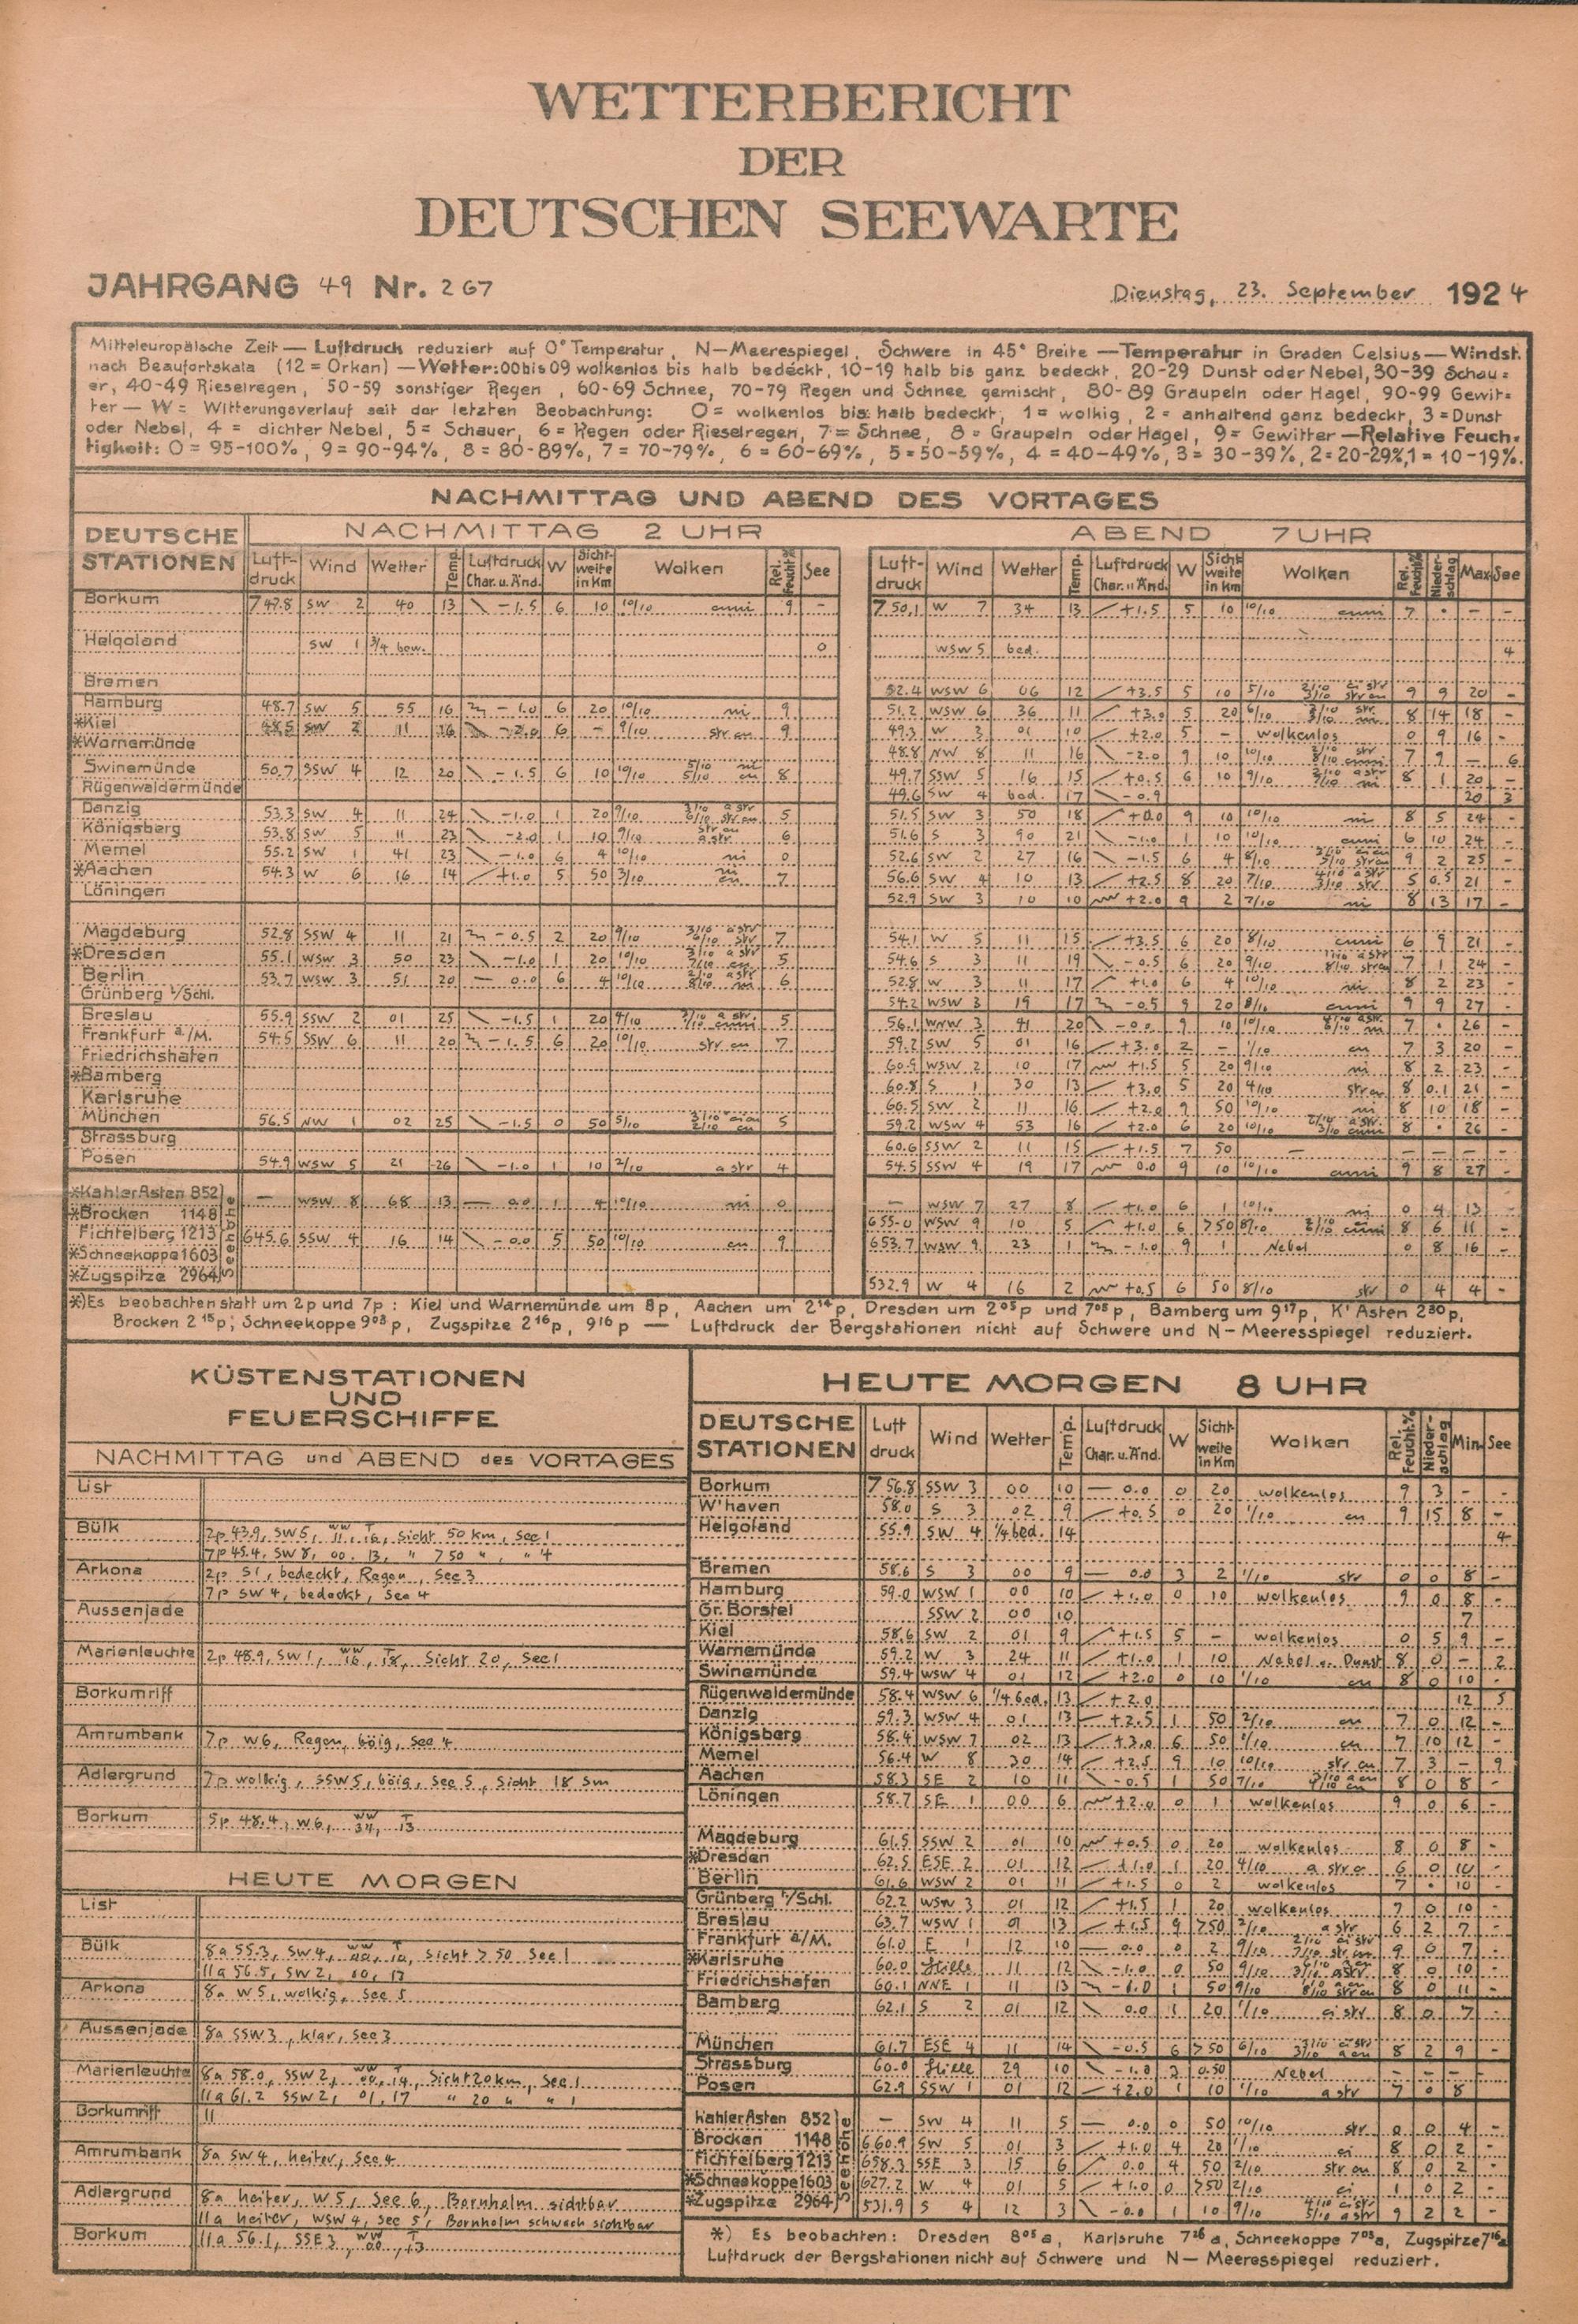 WETTERBERICHT
DER
DEUTSCHEN SEEWARTE
JAHRGANG 49 Nr. 267
Dienstag, 23. September 1924
Mitteleuropäische Zeit — Luftdruck reduziert auf 0° Temperatur, N—Meerespiegel, Schwere in 45° Breite — Temperatur in Graden Celsius — Windst.
nach Beaufortskala (12 = Orkan) — Wetter: 00 bis 09 wolkenlos bis halb bedeckt, 10-19 halb bis ganz bedeckt, 20-29 Dunst oder Nebel, 30-39 Schau=
er, 40-49 Rieselregen, 50-59 sonstiger Regen, 60-69 Schnee, 70-79 Regen und Schnee gemischt, 80-89 Graupeln oder Hagel, 90-99 Gewit=
ter — W = Witterungsverlauf seit der letzten Beobachtung: 0 = wolkenlos bis halb bedeckt, 1 = wolkig, 2 = anhaltend ganz bedeckt, 3 = Dunst
oder Nebel, 4 = dichter Nebel, 5 = Schauer, 6 = Regen oder Rieselregen, 7 = Schnee, 8 = Graupeln oder Hagel, 9 = Gewitter — Relative Feuch=
tigkeit: 0 = 95-100%, 9 = 90-94%, 8 = 80-89%, 7 = 70-79%, 6 = 60-69%, 5 = 50-59%, 4 = 40-49%, 3 = 30-39%, 2 = 20-29%, 1 = 10-19%.
NACHMITTAG UND ABEND DES VORTAGES
DEUTSCHE STATIONEN
NACHMITTAG 2 UHR
Luft-druck Wind Wetter Temp. Luftdruck Char. u. Änd. W Sicht-weite in Km Wolken Rel. Feucht.% See
Borkum 747.8 SW 2 40 13 - 1.5 6 10 10/10 cuni 9 -
Helgoland SW 1 3/4 bew. 0
Bremen
Hamburg 48.7 SW 5 55 16 - 1.0 6 20 10/10 ni 9
*Kiel 48.5 SW 2 11 16 - 2.0 6 - 9/10 str cu 9
*Warnemünde
Swinemünde 50.7 SSW 4 12 20 - 1.5 6 10 10/10 5/10 ni 5/10 cu 8
Rügenwaldermünde
Danzig 53.3 SW 4 11 24 - 1.0 1 20 9/10 3/10 a str 6/10 str cu 5
Königsberg 53.8 SW 5 11 23 - 2.0 1 10 9/10 str cu a str 6
Memel 55.2 SW 1 41 23 - 1.0 6 4 10/10 ni 0
*Aachen 54.3 W 6 16 14 + 1.0 5 50 3/10 ni cu 7
Löningen
Magdeburg 52.8 SSW 4 11 21 - 0.5 2 20 9/10 3/10 a str 6/10 str 7
*Dresden 55.1 WSW 3 50 23 - 1.0 1 20 10/10 3/10 a str 7/10 cu 5
Berlin 53.7 WSW 3 51 20 — 0.0 6 4 10/10 2/10 a str 8/10 ni 6
Grünberg i/Schl.
Breslau 55.9 SSW 2 01 25 - 1.5 1 20 4/10 2/10 a str. cuni 5
Frankfurt a./M. 54.5 SSW 6 11 20 - 1.5 6 20 10/10 str cu 7
Friedrichshafen
*Bamberg
Karlsruhe
München 56.5 NW 1 02 25 - 1.5 0 50 5/10 3/10 ci cu 2/10 cu 5
Strassburg
Posen 54.9 WSW 5 21 26 - 1.0 1 10 2/10 a str 4
Seehöhe
*Kahler Asten 852 — WSW 8 68 13 — 0.0 1 4 10/10 ni 0
*Brocken 1148
Fichtelberg 1213 645.6 SSW 4 16 14 - 0.0 5 50 10/10 cu 9
*Schneekoppe 1603
*Zugspitze 2964
ABEND 7 UHR
Luft-druck Wind Wetter Temp. Luftdruck Char. u. Änd. W Sicht weite in Km Wolken Rel. Feucht% Nieder-schlag Max See
750.1 W 7 34 13 + 1.5 5 10 10/10 cuni 7 • - -
WSW 5 bed. 4
52.4 WSW 6 06 12 + 3.5 5 10 5/10 2/10 ci str 3/10 str cu 9 9 20 -
51.2 WSW 6 36 11 + 3.0 5 20 6/10 3/10 str 3/10 ni 8 14 18 -
49.3 W 3 01 10 + 2.0 5 - wolkenlos 0 9 16 -
48.8 NW 8 11 16 - 2.0 9 10 10/10 2/10 str 8/10 cuni 7 9 — 6
49.7 SSW 5 16 15 + 0.5 6 10 9/10 2/10 a str 7/10 ni 8 1 20 -
49.6 SW 4 bed. 17 - 0.9 20 3
51.5 SW 3 50 18 + 0.0 9 10 10/10 ni 8 5 24 -
51.6 S 3 90 21 - 1.0 1 10 10/10 cuni 6 10 24 -
52.6 SW 2 27 16 - 1.5 6 4 8/10 3/10 ci cu 5/10 str cu 9 2 25 -
56.6 SW 4 10 13 + 2.5 8 20 7/10 4/10 a str 3/10 str 5 0.5 21 -
52.9 SW 3 10 10 + 2.0 9 2 7/10 ni 8 13 17 -
54.1 W 5 11 15 + 3.5 6 20 8/10 cuni 6 9 21 -
54.6 S 3 11 19 - 0.5 6 20 9/10 1/10 a str 8/10 str cu 7 1 24 -
52.8 W 3 11 17 + 1.0 6 4 10/10 ni 8 2 23 -
54.2 WSW 3 19 17 - 0.5 9 20 8/10 cuni 9 9 27 -
56.1 WNW 3 41 20 - 0.0 9 10 10/10 4/10 a str. 6/10 ni 7 • 26 -
59.2 SW 5 01 16 + 3.0 2 - 1/10 cu 7 3 20 -
60.9 WSW 2 10 17 + 1.5 5 20 9/10 ni 8 2 23 -
60.8 S 1 30 13 + 3.0 5 20 4/10 str cu 8 0.1 21 -
60.5 SW 2 11 16 + 2.0 9 50 10/10 ni 8 10 18 -
59.2 WSW 4 53 16 + 2.0 6 20 10/10 7/10 a str. 3/10 cuni 8 • 26 -
60.6 SSW 2 11 15 + 1.5 7 50 — - - - -
54.5 SSW 4 19 17 0.0 9 10 10/10 cuni 9 8 27 -
— WSW 7 27 8 + 1.0 6 1 10/10 ni 0 4 13 -
655.0 WSW 9 10 5 + 1.0 6 >50 8/10 2/10 cuni 8 6 11 -
653.7 WSW 9 23 1 - 1.0 9 1 Nebel 0 8 16 -
532.9 W 4 16 2 + 0.5 6 50 8/10 str 0 4 4 -
*) Es beobachten statt um 2p und 7p: Kiel und Warnemünde um 8p, Aachen um 2¹⁴p, Dresden um 2⁰⁵p und 7⁰⁵p, Bamberg um 9¹⁷p, K' Asten 2³⁰p,
Brocken 2¹⁵p, Schneekoppe 9⁰³p, Zugspitze 2¹⁶p, 9¹⁶p — Luftdruck der Bergstationen nicht auf Schwere und N—Meeresspiegel reduziert.
KÜSTENSTATIONEN
UND
FEUERSCHIFFE
NACHMITTAG und ABEND des VORTAGES
List
Bülk 2p 43.9, SW5, ww 11, T 16, Sicht 50 km, See 1
7p 45.4, SW 8, 00, 13, " 750 ", " 4
Arkona 2p S1, bedeckt, Regen, See 3
7p SW 4, bedeckt, See 4
Aussenjade
Marienleuchte 2p 48.9, SW1, ww 16, T 18, Sicht 20, See 1
Borkumriff
Amrumbank 7p W6, Regen, böig, See 4
Adlergrund 7p wolkig, SSW 5, böig, See 5, Sicht 18 sm
Borkum 5p 48.4, W6, ww 34, T 13
HEUTE MORGEN
List
Bülk 8a 55.3, SW 4, ww 00, T 10, Sicht > 50 See 1
11a 56.5, SW 2, 00, 17
Arkona 8a W5, wolkig, See 5
Aussenjade 8a SSW 3, klar, See 3
Marienleuchte 8a 58.0, SSW 2, ww 00, T 14, Sicht 20 km, See 1
11a 61.2 SSW 2, 01, 17 " 20 " " 1
Borkumriff 11
Amrumbank 8a SW 4, heiter, See 4
Adlergrund 8a heiter, W 5, See 6, Bornholm sichtbar
11a heiter, WSW 4, See 5, Bornholm schwach sichtbar
Borkum 11a 56.1, SSE 3, ww 00, T 13
HEUTE MORGEN 8 UHR
DEUTSCHE STATIONEN Luft druck Wind Wetter Temp. Luftdruck Char. u. Änd. W Sicht-weite in Km Wolken Rel. Feucht.% Nieder-schlag Min See
Borkum 756.8 SSW 3 00 10 — 0.0 0 20 wolkenlos 9 3 - -
W'haven 58.0 S 3 02 9 + 0.5 0 20 1/10 cu 9 15 8 -
Helgoland 55.9 SW 4 1/4 bed. 14 4
Bremen 58.6 S 3 00 9 — 0.0 3 2 1/10 str 0 0 8 -
Hamburg 59.0 WSW 1 00 10 + 1.0 0 10 wolkenlos 9 0 8 -
Gr. Borstel SSW 2 00 10 7
Kiel 58.6 SW 2 01 9 + 1.5 5 - wolkenlos 0 5 9 -
Warnemünde 59.2 W 3 24 11 + 1.0 1 10 Nebel u. Dunst 8 0 - 2
Swinemünde 59.4 WSW 4 01 12 + 2.0 0 10 1/10 cu 8 0 10 -
Rügenwaldermünde 58.4 WSW 6 1/4 bed. 13 + 2.0 12 5
Danzig 59.3 WSW 4 01 13 + 2.5 1 50 2/10 cu 7 0 12 -
Königsberg 58.4 WSW 7 02 13 + 3.0 6 50 1/10 cu 7 10 12 -
Memel 56.4 W 8 30 14 + 2.5 9 10 10/10 str cu 7 3 - 9
Aachen 58.3 SE 2 10 11 - 0.5 1 50 7/10 a cu 8 0 8 -
Löningen 58.7 SE 1 00 6 + 2.0 0 1 wolkenlos 9 0 6 -
Magdeburg 61.5 SSW 2 01 10 + 0.5 0 20 wolkenlos 8 0 8 -
*Dresden 62.5 ESE 2 01 12 + 1.0 1 20 4/10 a str 6 0 10 -
Berlin 61.6 WSW 2 01 11 + 1.5 0 2 wolkenlos 7 • 10 -
Grünberg i/Schl. 62.2 WSW 3 01 12 + 1.5 1 20 wolkenlos 7 0 10 -
Breslau 63.7 WSW 1 01 13 + 1.5 9 >50 2/10 a str 6 2 7 -
Frankfurt a/M. 61.0 E 1 12 10 — 0.0 0 2 9/10 2/10 ci str 7/10 str cu 9 0 7 -
*Karlsruhe 60.0 Stille 11 12 - 1.0 0 50 9/10 3/10 a str 8 0 10 -
Friedrichshafen 60.1 NNE 1 11 13 - 1.0 1 50 9/10 8/10 str cu 8 0 11 -
Bamberg 62.1 S 2 01 12 0.0 1 20 1/10 ci str 8 0 7 -
München 61.7 ESE 4 11 14 - 0.5 6 >50 6/10 3/10 ci str 3/10 a cu 8 2 9 -
Strassburg 60.0 Stille 29 10 - 1.0 3 0.50 Nebel - - - -
Posen 62.9 SSW 1 01 12 + 2.0 1 10 1/10 a str 7 0 8
Seehöhe
Kahler Asten 852 — SW 4 11 5 — 0.0 0 50 10/10 str 0 0 4 -
Brocken 1148 660.9 SW 5 01 3 + 1.0 4 20 1/10 ci 8 0 2 -
Fichtelberg 1213 658.3 SSE 3 15 6 0.0 4 50 2/10 str cu 8 0 2 -
*Schneekoppe 1603 627.2 W 4 01 5 + 1.0 0 >50 2/10 ci 1 0 2 -
*Zugspitze 2964 531.9 S 4 12 3 - 0.0 1 10 9/10 4/10 ci str 5/10 a str 9 2 2 -
*) Es beobachten: Dresden 8⁰⁵a, Karlsruhe 7²⁶a, Schneekoppe 7⁰³a, Zugspitze 7¹⁶a
Luftdruck der Bergstationen nicht auf Schwere und N—Meeresspiegel reduziert.